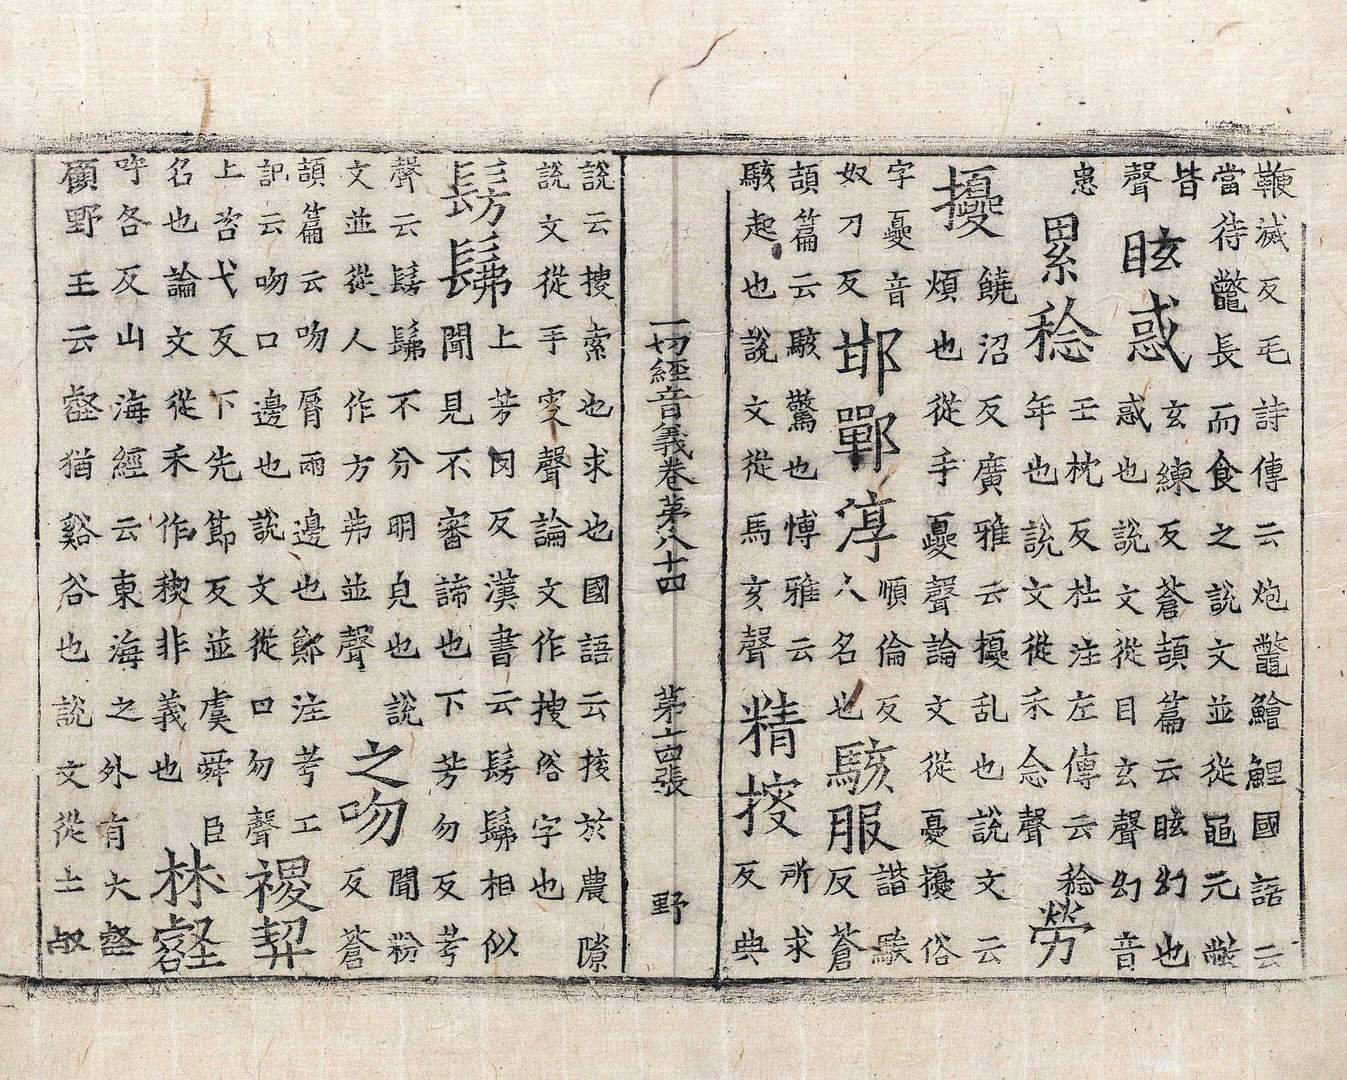 鞭滅反毛詩傳云炮鼈鱠鯉國語云
當待鼈長而食之說文並從黽元敝
皆
聲
眩惑
玄練反蒼頡篇云眩幻也
惑也說文從目玄聲幻音
患
累稔
壬枕反杜注左傳云稔
年也說文從禾念聲
勞
擾
饒沼反廣雅云擾乱也說文云
煩也從手憂聲論文從憂擾俗
字憂音
奴刀反
邯鄲淳
順倫反
人名也
駭服
諧騃
反蒼
頡篇云駭驚也愽雅云
駭起也說文從馬亥聲
精㨮
所求
反典
一切經音義卷苐八十四 苐十四張 野
說云㨮索也求也國語云㨮於農隙
說文從手叜聲論文作搜俗字也
髣髴
上芳罔反漢書云髣髴相似
聞見不審諦也下芳勿反考
聲云髣髴不分明皃也說
文並從人作方弗並聲
之吻
聞粉
反蒼
頡篇云吻脣兩邊也鄭注考工
記云吻口邊也說文從口勿聲
稷契
上咨弋反下先節反並虞舜臣
名也論文從禾作稧非義也
林壑
呼各反山海經云東海之外有大壑
顧野王云壑猶谿谷也說文從土㕡